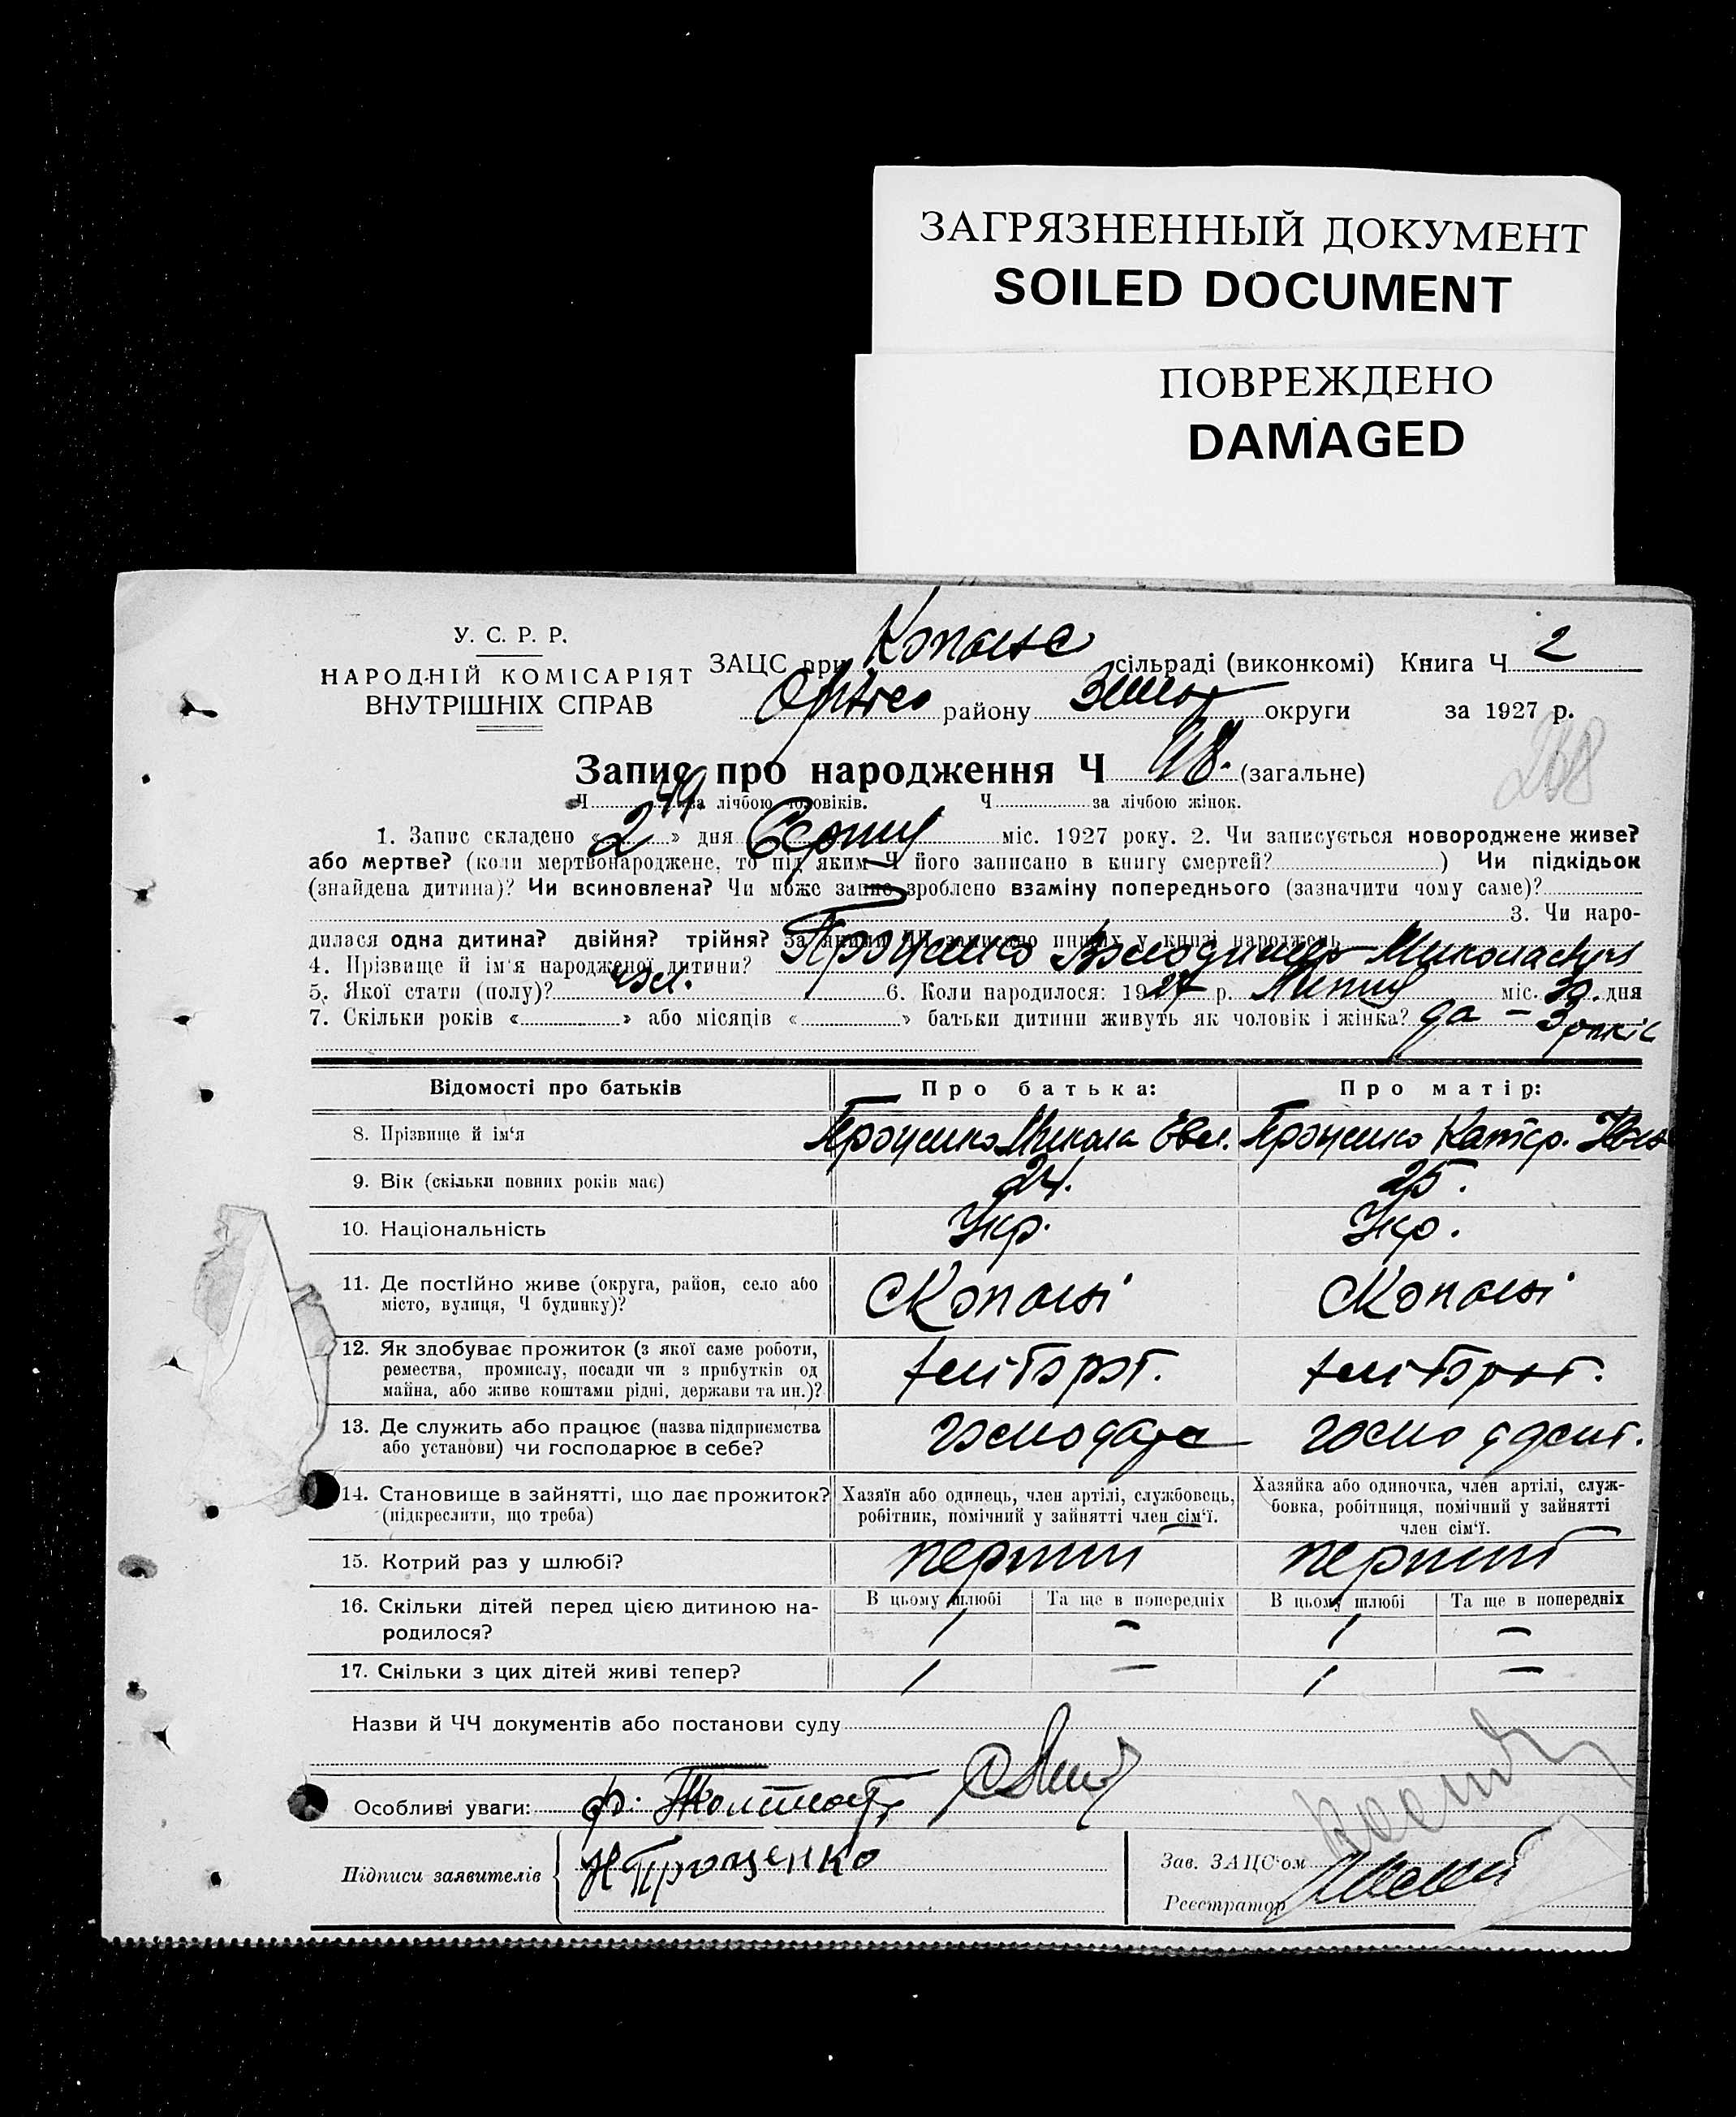 ЗАГРЯЗНЕННЫЙ ДОКУМЕНТ
SOILED DOCUMENT
ПОВРЕЖДЕНО
DAMAGED
У. С. Р. Р.
НАРОДНІЙ КОМІСАРІЯТ
ВНУТРІШНІХ СПРАВ
ЗАЦС при сільраді (виконкомі) Книга Ч 2
району округи за 1927 р.
Запис про народження Ч 98. (загальне)
268
Ч 49 за лічбою чоловіків. Ч за лічбою жінок.
1. Запис складено «2» дня Серпня міс. 1927 року. 2. Чи записується новороджене живе?
або мертве? (коли мертвонароджене, то під яким Ч його записано в книгу смертей? ) Чи підкідьок
(знайдена дитина)? Чи всиновлена? Чи може запис зроблено взаміну попереднього (зазначити чому саме)?
3. Чи наро-
дилася одна дитина? двійня? трійня? За якими ЧЧ записано инших у книзі народжень
4. Прізвище й ім'я народженої дитини? Проценко Володимир Миколаевич
5. Якої стати (полу)? чол. 6. Коли народилося: 1927 р. Липня міс. 30. дня
7. Скільки років « » або місяців « » батьки дитини живуть як чоловік і жінка? да – 3 років
Відомості про батьків Про батька: Про матір:
8. Прізвище й ім'я Проценко Микола Проценко Катер.
9. Вік (скільки повних років має) 24. 25.
10. Національність Укр. Укр.
11. Де постійно живе (округа, район, село або
місто, вулиця, Ч будинку)? с Копані с Копані
12. Як здобуває прожиток (з якої саме роботи,
ремества, промислу, посади чи з прибутків од
майна, або живе коштами рідні, держави та ин.)? хліборот. хліборот.
13. Де служить або працює (назва підприємства
або установи) чи господарює в себе?
14. Становище в зайнятті, що дає прожиток?
(підкреслити, що треба)
Хазяїн або одинець, член артілі, службовець,
робітник, помічний у зайнятті член сім'ї.
Хазяйка або одиночка, член артілі, служ-
бовка, робітниця, помічний у зайнятті
член сім'ї.
15. Котрий раз у шлюбі? перший перший
16. Скільки дітей перед цією дитиною на-
родилося?
В цьому шлюбі Та ще в попередніх В цьому шлюбі Та ще в попередніх
1 – 1 –
17. Скільки з цих дітей живі тепер? 1 – 1 –
Назви й ЧЧ документів або постанови суду
Особливі уваги:
Підписи заявителів Н Проценко
Зав. ЗАЦС'ом
Реєстратор